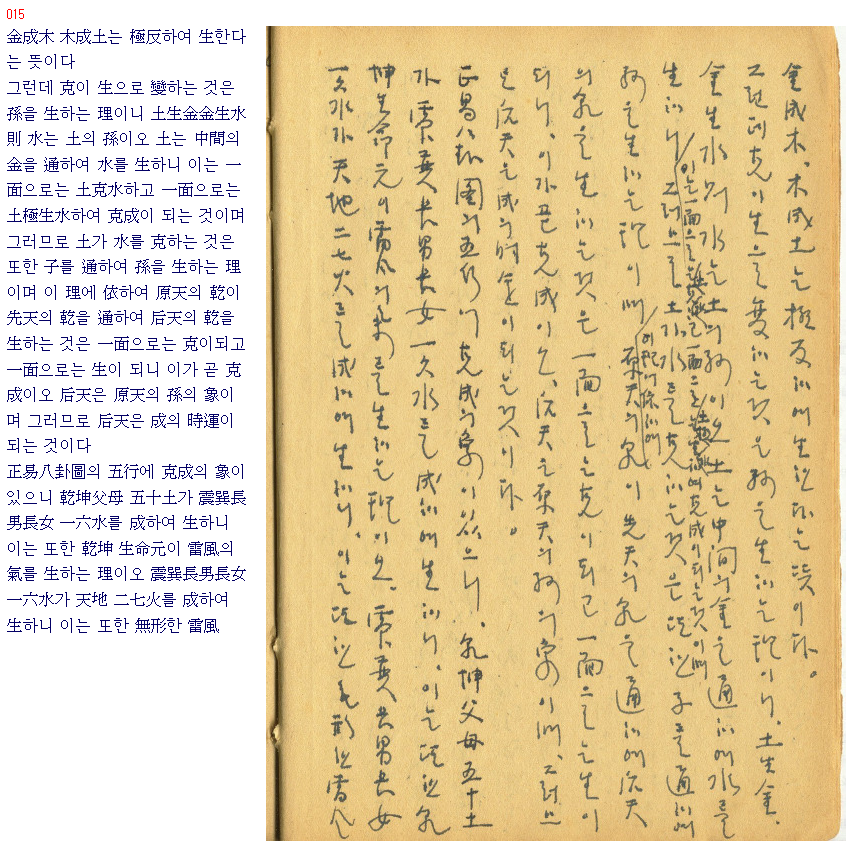 015
金成木 木成土는 極反하여 生한다
는 뜻이다
그런데 克이 生으로 變하는 것은
孫을 生하는 理이니 土生金金生水
則 水는 土의 孫이오 土는 中間의
金을 通하여 水를 生하니 이는 一
面으로는 土克水하고 一面으로는
土極生水하여 克成이 되는 것이며
그러므로 土가 水를 克하는 것은
또한 子를 通하여 孫을 生하는 理
이며 이 理에 依하여 原天의 乾이
先天의 乾을 通하여 后天의 乾을
生하는 것은 一面으로는 克이되고
一面으로는 生이 되니 이가 곧 克
成이오 后天은 原天의 孫의 象이
며 그러므로 后天은 成의 時運이
되는 것이다
正易八卦圖의 五行에 克成의 象이
있으니 乾坤父母 五十土가 震巽長
男長女 一六水를 成하여 生하니
이는 또한 乾坤 生命元이 雷風의
氣를 生하는 理이오 震巽長男長女
一六水가 天地 二七火를 成하여
生하니 이는 또한 無形한 雷風
金成木、木成土는 極反하여 生한다는 뜻이다。
그런데 克이 生으로 變하는 것은 孫을 生하는 理이니、土生金、
金生水則 水는 土의 孫이오 土는 中間의 金을 通하여 水를
生하니 이는 一面으로는 土克水하고 一面으로는 土極生水하여 克成이 되는 것이며
그러므로 土가 水를 克하는 것은 또한 子를 通하여
孫을 生하는 理이며 이 理에 依하여 原天의 乾이 先天의 乾을 通하여 后天
의 乾을 生하는 것은 一面으로는 克이 되고 一面으로는 生이
되니、이가 곧 克成이오、后天은 原天의 孫의 象이며、그러므
로 后天은 成의 時運이 되는 것이다。
正易八卦圖의 五行에 克成의 象이 있으니、乾坤父母五十土
가 震巽長男長女 一六水를 成하여 生하니、이는 또한 乾
坤生命元의 雷風의 氣를 生하는 理이오、震巽長男長女
一六水가 天地 二七火를 成하여 生하니、이는 또한 無形한 雷風